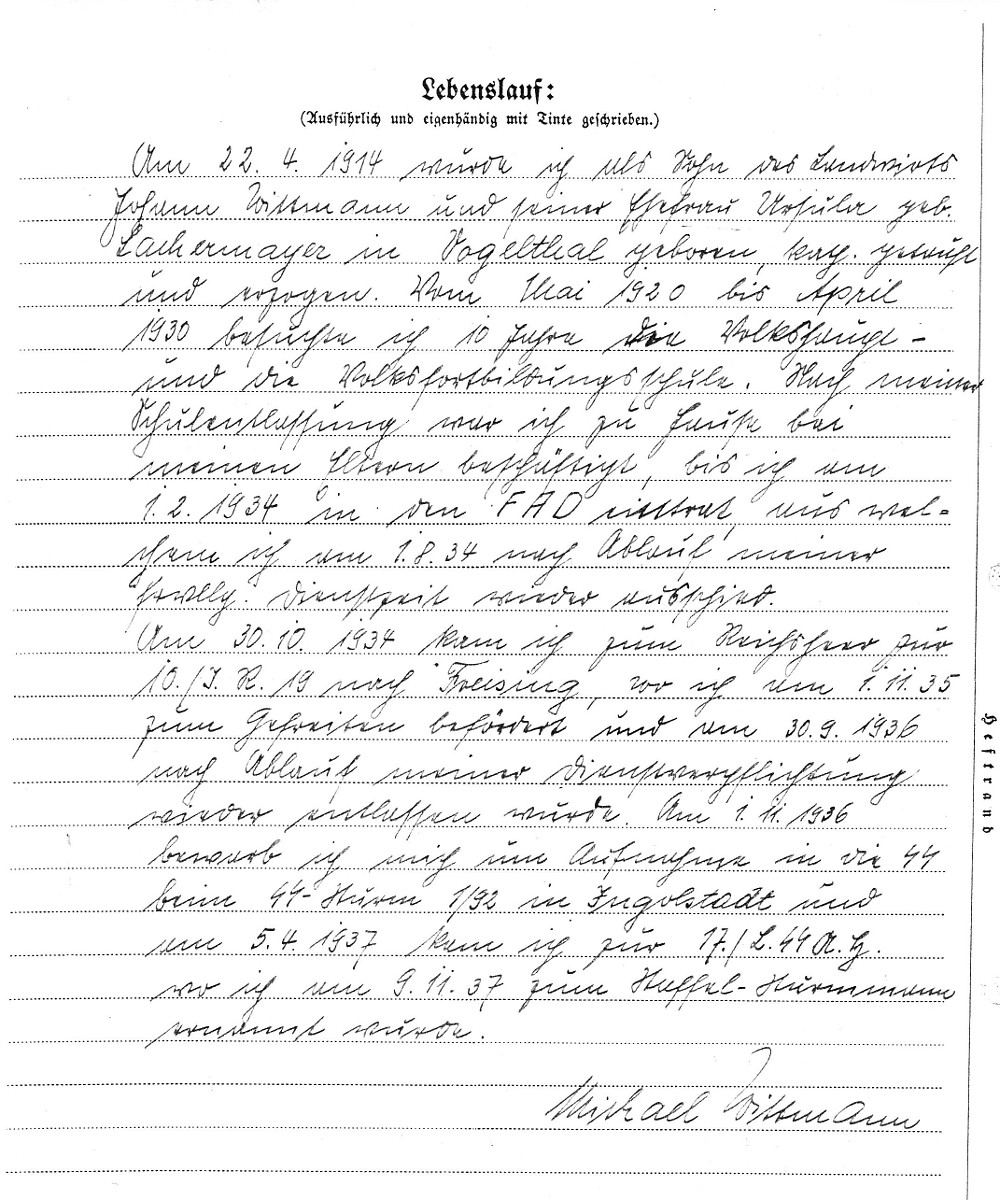 Lebenslauf:
(Ausführlich und eigenhändig mit Tinte geschrieben.)
Am 22. 4. 1914 wurde ich als Sohn des Landwirts
Johann Wittmann und seiner Ehefrau Ursula geb.
Lachermayer in Vogelthal geboren, kath. getauft
und erzogen. Vom Mai 1920 bis April
1930 besuchte ich 10 Jahre die Volkshaupt-
und die Volksfortbildungsschule. Nach meiner
Schulentlassung war ich zu Hause bei
meinen Eltern beschäftigt, bis ich am
1. 2. 1934 in den FAD eintrat, aus wel-
chem ich am 1.8.34 nach Ablauf meiner
frwllg. Dienstzeit wieder ausschied.
Am 30.10. 1934 kam ich zum Reichsheer zur
10./J. R. 19 nach Freising, wo ich am 1.11.35
zum Gefreiten befördert und am 30.9. 1936
nach Ablauf meiner Dienstverpflichtung
wieder entlassen wurde. Am 1.11.1936
bewarb ich mich um Aufnahme in die SS
beim SS-Sturm 1/92 in Ingolstadt und
am 5.4. 1937 kam ich zur 17./L.SS A.H.
wo ich am 9.11.37 zum Staffel-Sturmmann
ernannt wurde.
Michael Wittmann
Heftrand